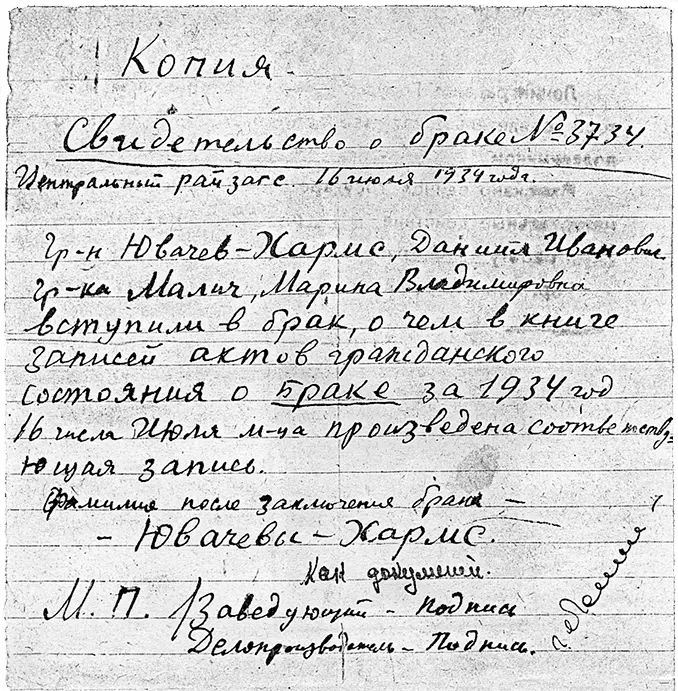 Копия.
Свидетельство о браке № 3734.
Центральный райзагс. 16 июля 1934 года.
Гр-н Ювачев-Хармс, Даниил Иванович
Гр-ка Малич, Марина Владимировна
вступили в брак, о чем в книге
записей актов гражданского
состояния о браке за 1934 год
16 числа Июля м-ца произведена соответству-
ющая запись.
Фамилия после заключения брака —
- Ювачевы - Хармс.
М. П. Заведующий - подпись
Делопроизводитель - Подпись.